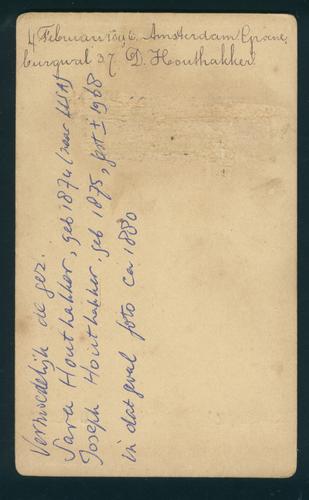 4 Februari 1896. Amsterdam Groene
burgwal 37 D. Houthakker.
Vermoedelijk de gez.
Sara Houthakker, geb 1874 (naar USA)
Joseph Houthakker, geb 1875, gest ± 1968
in dat geval foto ca 1880